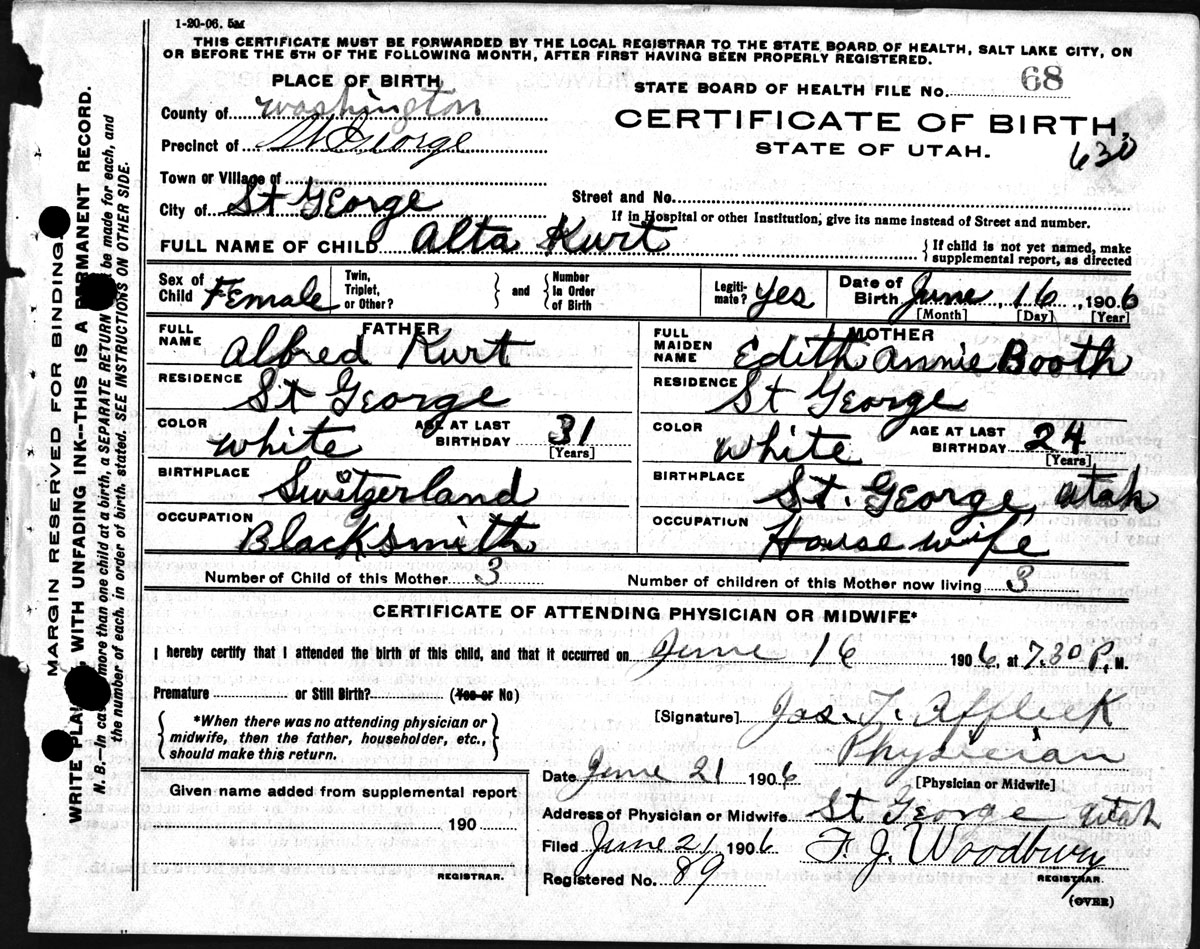 1-20-06. 5M
THIS CERTIFICATE MUST BE FORWARDED BY THE LOCAL REGISTRAR TO THE STATE BOARD OF HEALTH, SALT LAKE CITY, ON
OR BEFORE THE 5TH OF THE FOLLOWING MONTH, AFTER FIRST HAVING BEEN PROPERLY REGISTERED.
PLACE OF BIRTH
STATE BOARD OF HEALTH FILE No. 68
County of Washington
CERTIFICATE OF BIRTH,
Precinct of St George
STATE OF UTAH.
630
Town or Village of
City of St George
Street and No.
If in Hospital or other Institution, give its name instead of Street and number.
FULL NAME OF CHILD Alta Kurt
{ If child is not yet named, make
supplemental report, as directed
Sex of Child Female
Twin, Triplet, or Other? } and { Number In Order of Birth
Legitimate? Yes
Date of Birth June, 16, 1906
[Month] [Day] [Year]
FATHER
FULL NAME Alfred Kurt
RESIDENCE St George
COLOR White AGE AT LAST BIRTHDAY 31
[Years]
BIRTHPLACE Switzerland
OCCUPATION Blacksmith
MOTHER
FULL MAIDEN NAME Edith Annie Booth
RESIDENCE St George
COLOR White AGE AT LAST BIRTHDAY 24
[Years]
BIRTHPLACE St. George, Utah
OCCUPATION House wife
Number of Child of this Mother 3 Number of children of this Mother now living 3
CERTIFICATE OF ATTENDING PHYSICIAN OR MIDWIFE*
I hereby certify that I attended the birth of this child, and that it occurred on June 16 1906, at 7.30 P. M.
Premature or Still Birth? (Yes or No)
{ *When there was no attending physician or
midwife, then the father, householder, etc.,
should make this return. }
[Signature] Jas. T. Affleck
Physician
Date June 21 1906 [Physician or Midwife]
Address of Physician or Midwife St George Utah
Filed June 21 1906 F. J. Woodbury
REGISTRAR.
Registered No. 89
(OVER)
Given name added from supplemental report
190
REGISTRAR.
MARGIN RESERVED FOR BINDING
WRITE PLAI WITH UNFADING INK--THIS IS A PERMANENT RECORD.
N. B.—In ca more than one child at a birth, a SEPARATE RETURN be made for each, and
the number of each, in order of birth, stated. SEE INSTRUCTIONS ON OTHER SIDE.